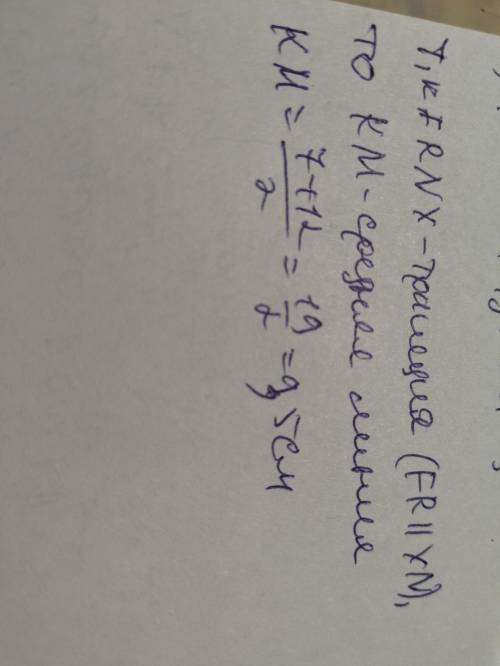 т,к FRNX-трапеция (FR || XN),
то KM-средняя линия
KM = 7+12/2 = 19/2 = 9,5 см